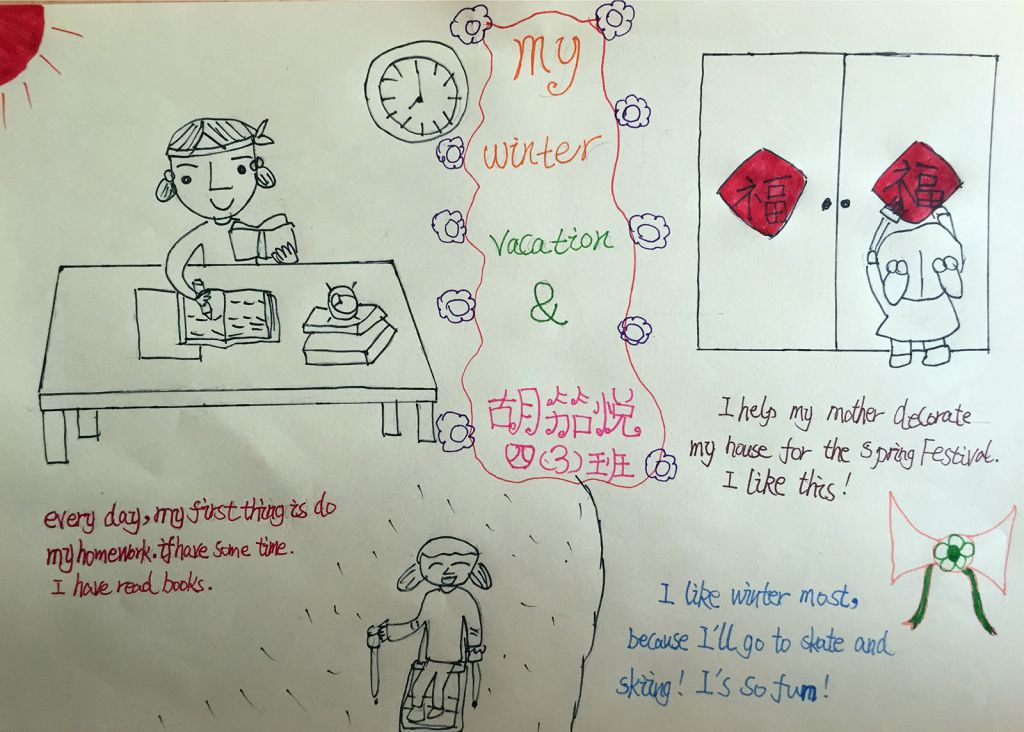 my
winter
vacation
&
胡笳悦
四(3)班
福
福
every day, my first thing is do
my homework. if have some time.
I have read books.
I help my mother decorate
my house for the Spring Festival.
I like this!
I like winter most,
because I'll go to skate and
skiing! I's so fun!